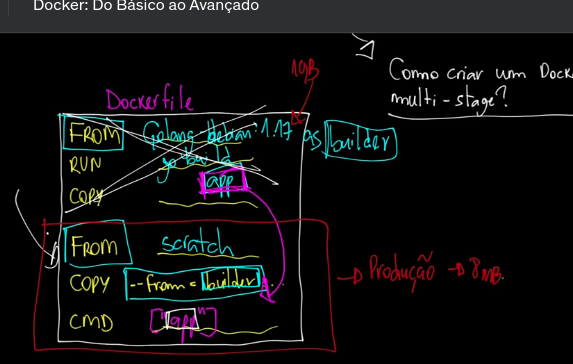 Docker: Do Básico ao Avançado
1GB
Como criar um Dock
multi-stage?
Dockerfile
FROM Golang-debian:1.17 as builder
RUN go build
COPY app
FROM scratch
COPY --from=builder ..
CMD ["app"]
→ Produção → 8MB.